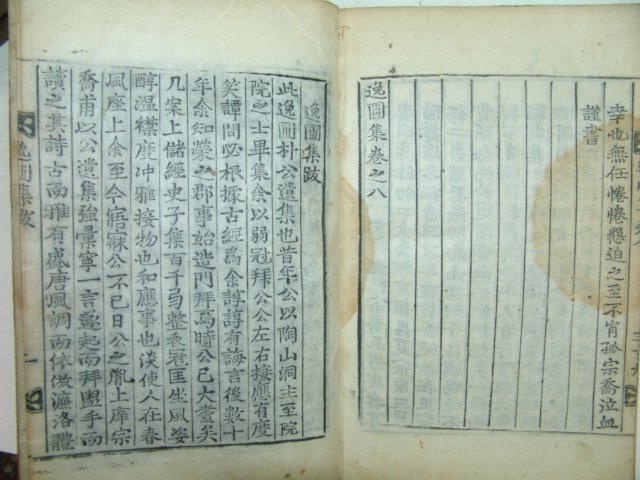 幸也無任惓惓懇迫之至不肖孤宗喬泣血
謹書
逸圃集卷之八
逸圃集跋
此逸圃朴公遺集也昔年公以陶山洞主至院
院之士畢集余以弱冠拜公公左右接應有度
笑譚間必根據古經爲余諄諄有誨言後數十
年余知榮之郡事始造門拜焉時公已大耋矣
几案上儲經史子集百千匀整衣冠匡坐風姿
醇溫襟度冲雅接物也和應事也淡使人在春
風座上余至今寤寐公不已日公之胤上庠宗
喬甫以公遺集強彙寧一言遂起而拜與手而
讀之其詩古而雅有盛唐風調而依倣濂洛體
逸圃集跋
一